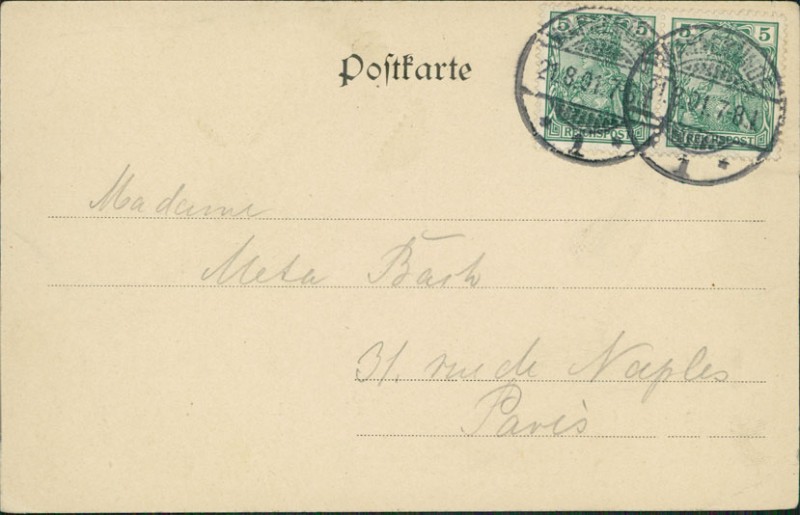 Postkarte
5 5 5
21.8.01.7-
21.8.01.7-8.
REICHSPOST REICHSPOST
* 1 * 1 *
Madame
Meta
31, rue de Naples
Paris